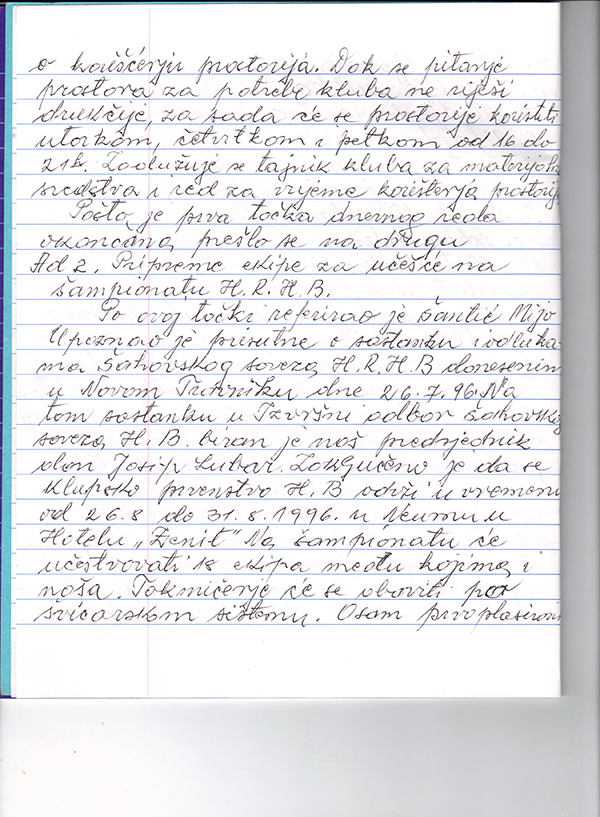 o korišćenju prostorija. Dok se pitanje
prostora za potrebe kluba ne riješi
drukčije, za sada će se prostorije koristiti
utorkom, četvrtkom i petkom od 16 do
21h. Zadužuje se tajnik kluba za materijalna
sredstva i red za vrijeme korištenja prostorija
Pošto je prva točka dnevnog reda
okončana, prešlo se na drugu
Ad 2. Pripreme ekipe za učešće na
šampionatu H.R.H.B.
Po ovoj točki referirao je Šantić Mijo
Upoznao je prisutne o sastanku i odluka-
ma Šahovskog saveza H.R.H.B donesenim
u Novom Travniku dne 26.7.96. Na
tom sastanku u Izvršni odbor Šahovskog
saveza H.B. biran je naš predsjednik
don Josip Lubar. Zaključeno je da se
klupsko prvenstvo H.B održi u vremenu
od 26.8 do 31.8.1996. u Neumu u
Hotelu „Zenit" Na šampionatu će
učestvovati 18 ekipa među kojima i
naša. Takmičenje će se obaviti po
švicarskom sistemu. Osam prvoplasirani